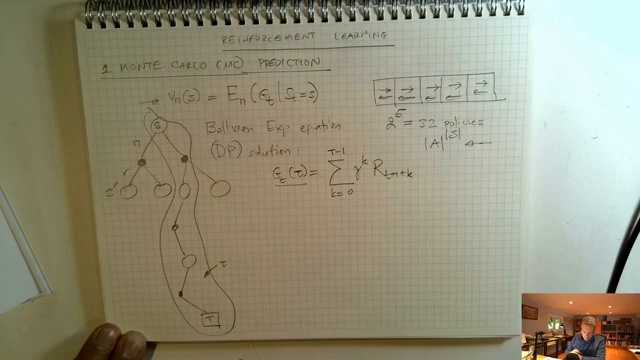 REINFORCEMENT LEARNING
1. MONTE CARLO (MC) PREDICTION
→ Vπ(s) = Eπ(Gt | St=s)
Bellman Exp equation
(DP) solution:
Gt(τ) = Σ_{k=0}^{T-1} γ^k R_{t+1+k}
2^5 = 32 policies
|A|^|S| ←
S
π
r
s'
τ
T